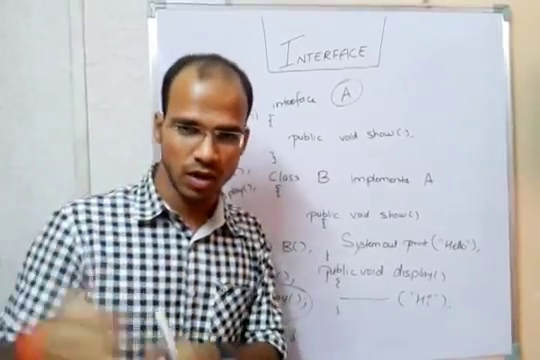 INTERFACE
interface A
{
public void show();
}
Class B implements A
{
public void show()
{
B(); System.out.print("Hello");
}
public void display()
{
("Hi");
}